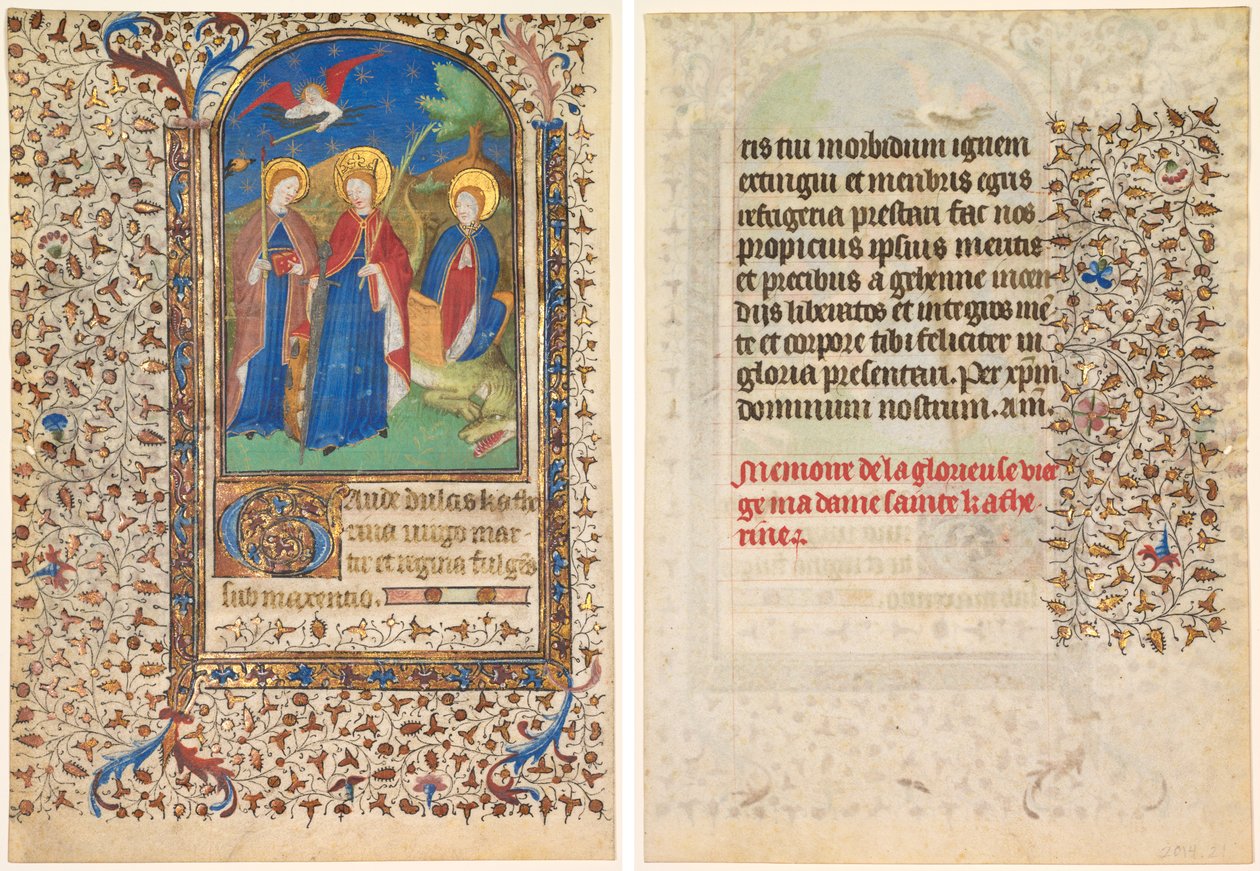 Gaude dulcis kathe
rina uirgo mar-
tir et regina fulgēs
sub maxentio.
ris tui morbidum ignem
extingui et menbris egris
refugeria prestari fac nos
propicius ipsius meritis
et precibus a gehenne incen
dijs liberatos et integros mē-
te et corpore tibi feliciter in
gloria presentari. Per xp̄m
dominum nostrum. Am.
Memoire de la glorieuse vier
ge ma dame sainte kathe-
rine.